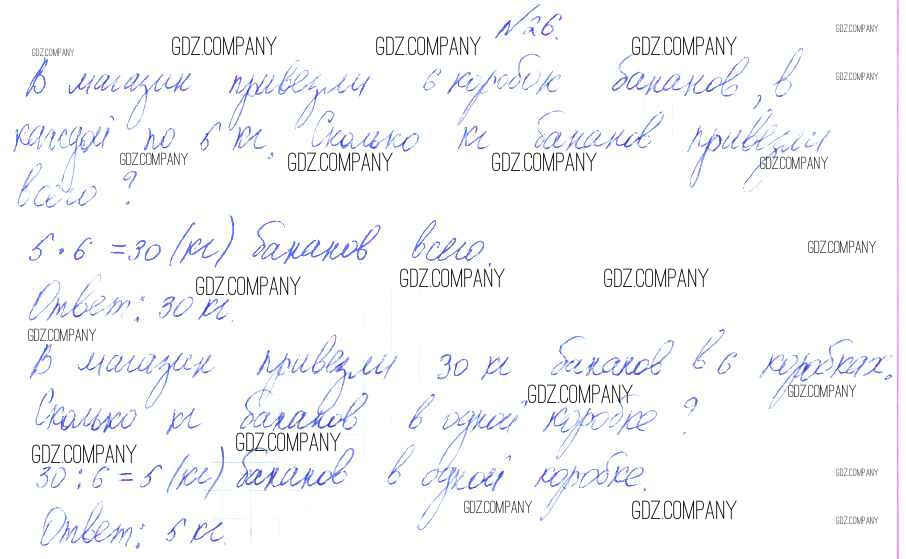 №26.
В магазин привезли 6 коробок бананов, в
каждой по 5 кг. Сколько кг бананов привезли
всего?
5 · 6 = 30 (кг) бананов всего.
Ответ: 30 кг.
В магазин привезли 30 кг бананов в 6 коробках.
Сколько кг бананов в одной коробке?
30 : 6 = 5 (кг) бананов в одной коробке.
Ответ: 5 кг.
GDZ.COMPANY GDZ.COMPANY GDZ.COMPANY GDZ.COMPANY GDZ.COMPANY
GDZ.COMPANY
GDZ.COMPANY GDZ.COMPANY GDZ.COMPANY GDZ.COMPANY
GDZ.COMPANY GDZ.COMPANY GDZ.COMPANY GDZ.COMPANY
GDZ.COMPANY
GDZ.COMPANY GDZ.COMPANY
GDZ.COMPANY GDZ.COMPANY GDZ.COMPANY
GDZ.COMPANY GDZ.COMPANY GDZ.COMPANY